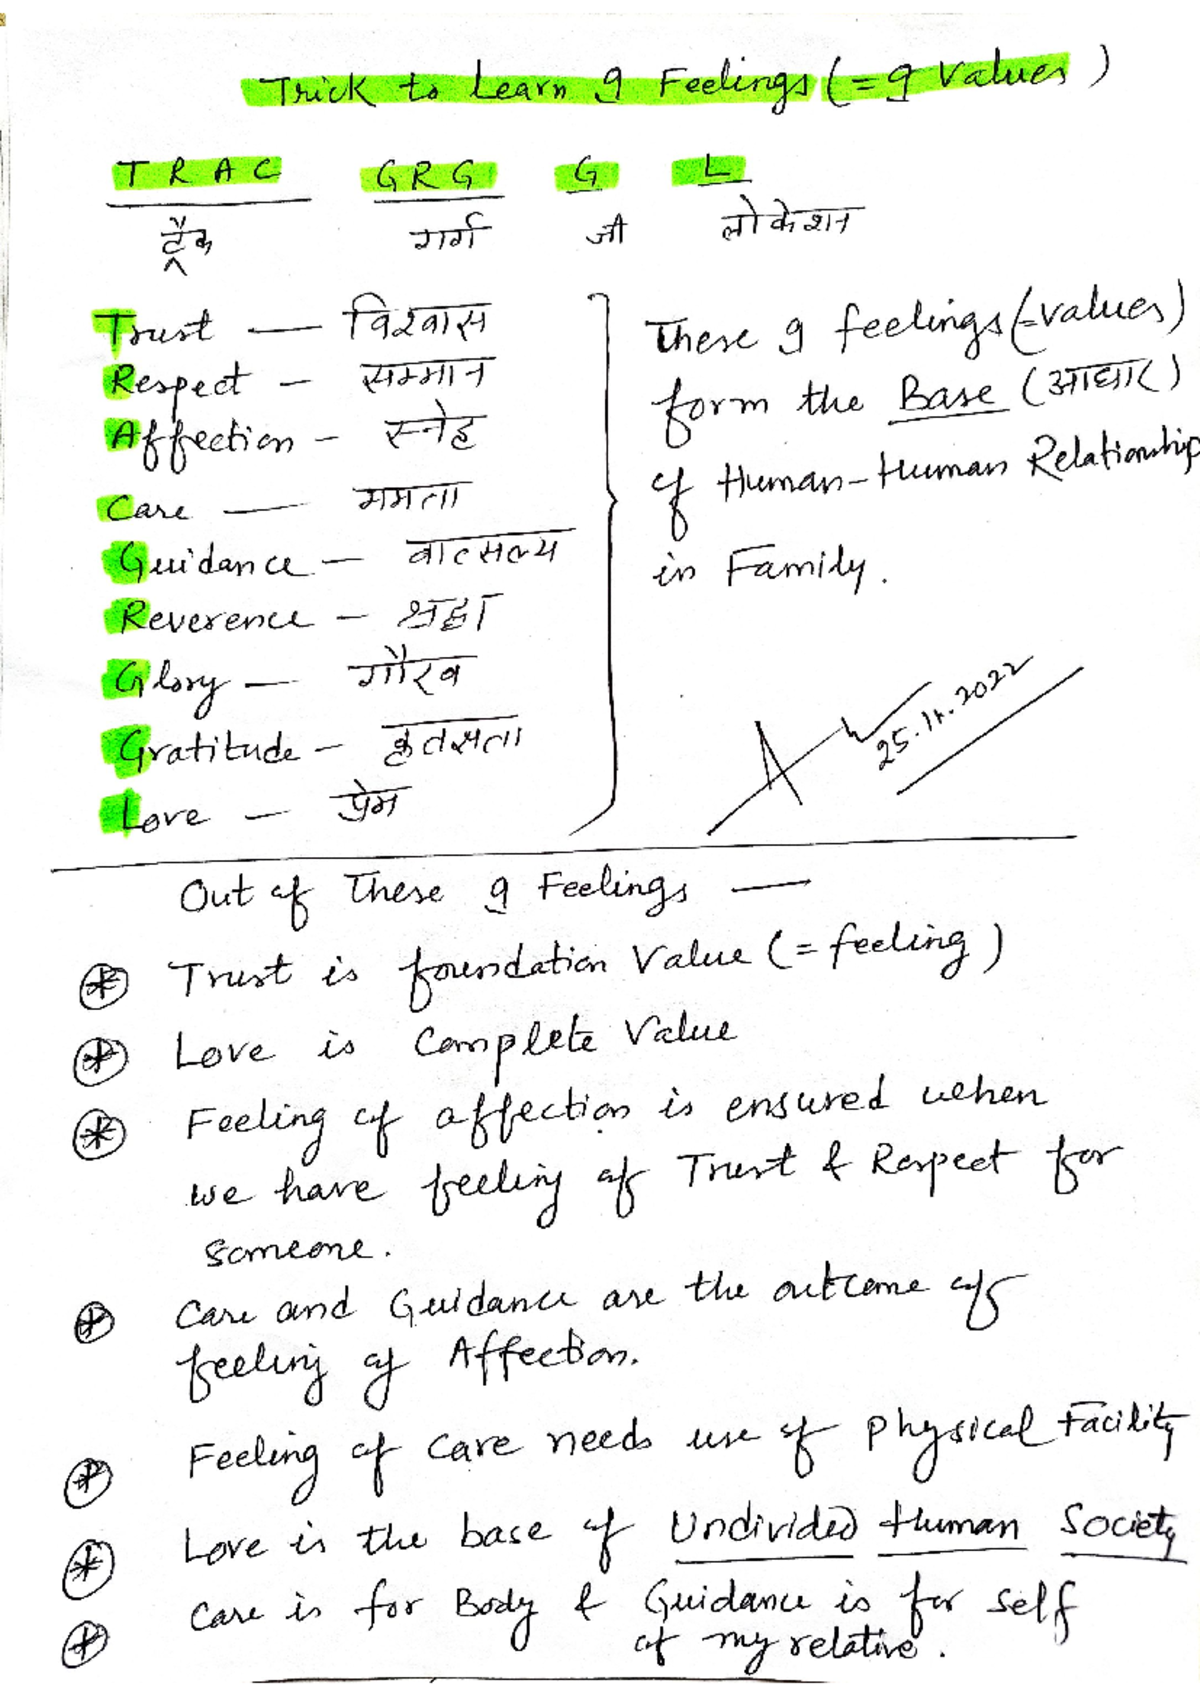 Trick to Learn 9 Feelings (= 9 Values)
T R A C GRG G L
ट्रैक गर्ग जी लोकेशन
Trust — विश्वास
Respect – सम्मान
Affection – स्नेह
Care — ममता
Guidance – वात्सल्य
Reverence – श्रद्धा
Glory – गौरव
Gratitude – कृतज्ञता
Love – प्रेम
These 9 feelings (=values)
form the Base (आधार)
of Human-Human Relationship
in Family.
25.11.2022
Out of These 9 Feelings —
Trust is foundation Value (= feeling)
Love is Complete Value
Feeling of affection is ensured when
we have feeling of Trust & Respect for
someone.
Care and Guidance are the outcome of
feeling of Affection.
Feeling of care needs use of physical Facility
Love is the base of Undivided Human Society
Care is for Body & Guidance is for self
of my relative.